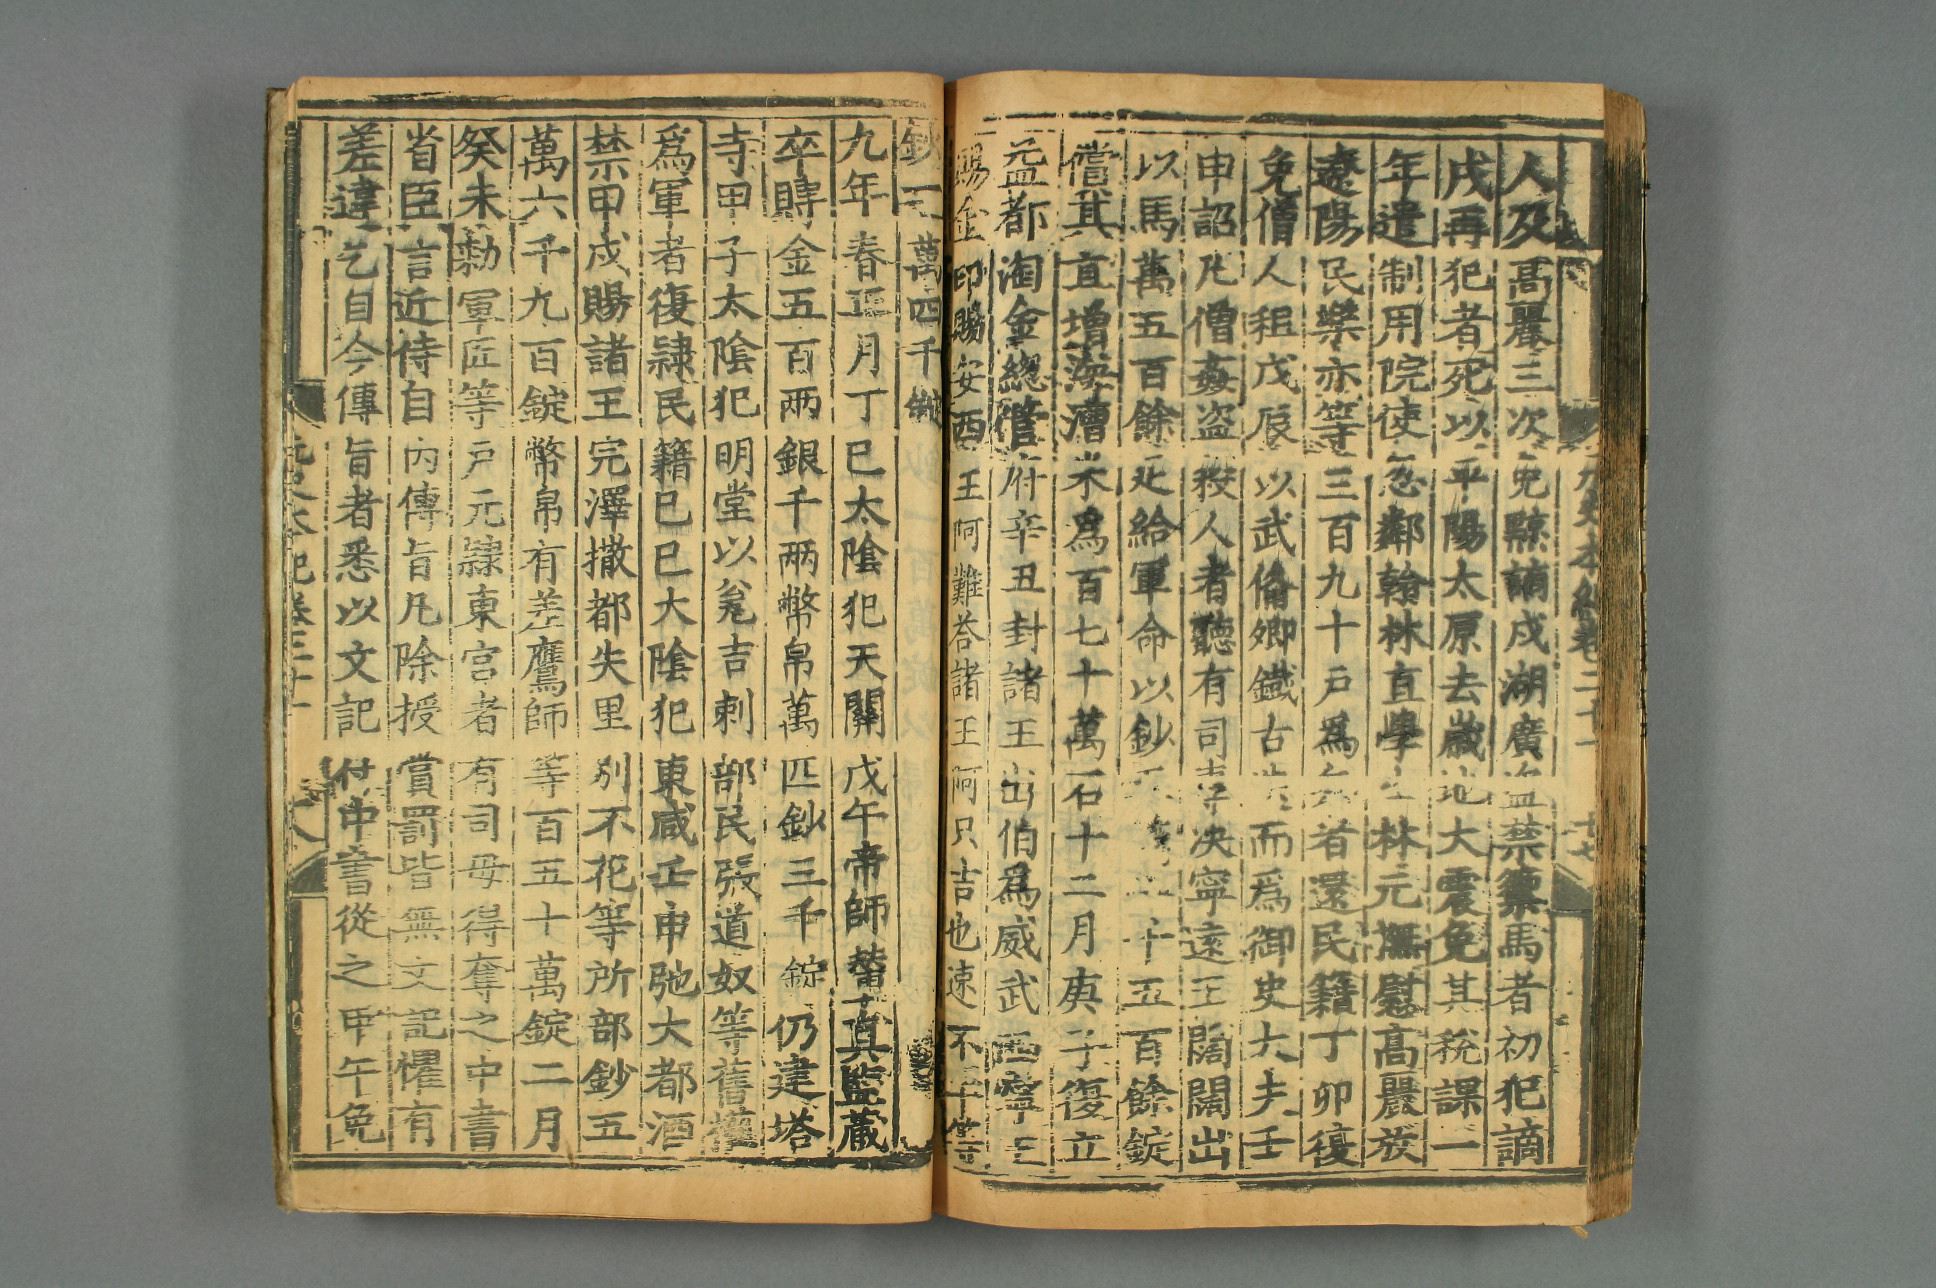 元史本紀卷二十一 十七
人及高麗三次免黥謫戍湖廣盜禁禦馬者初犯謫
戍再犯者死以平陽太原去歲地大震免其稅課一
年遣制用院使忽鄰翰林直學士林元撫慰高麗放
遼陽民樂亦等三百九十戶爲 者還民籍丁卯復
免僧人租戊辰以武備卿鐵古 而爲御史大夫壬
申詔凡僧姦盜殺人者聽有司專決寧遠王闊闊出
以馬萬五百餘疋給軍命以鈔 二千五百餘錠
償其直增海漕米爲百七十萬石十二月庚子復立
益都淘金總管府辛丑封諸王出伯爲威武西寧王
賜金印賜安西王阿難荅諸王阿只吉也速不干等
鈔一萬四千錠
九年春正月丁巳太陰犯天關戊午帝師輦真監藏
卒賻金五百兩銀千兩幣帛萬匹鈔三千錠仍建塔
寺甲子太陰犯明堂以瓮吉剌部民張道奴等舊權
爲軍者復隸民籍己巳大陰犯東咸壬申弛大都酒
禁甲戌賜諸王完澤撒都失里別不花等所部鈔五
萬六千九百錠幣帛有差鷹師等百五十萬錠二月
癸未勑軍匠等戶元隸東宮者有司毋得奪之中書
省臣言近侍自內傳旨凡除授賞罰皆無文記懼有
差違乞自今傳旨者悉以文記付中書從之甲午免
元史本紀卷二十一 十八